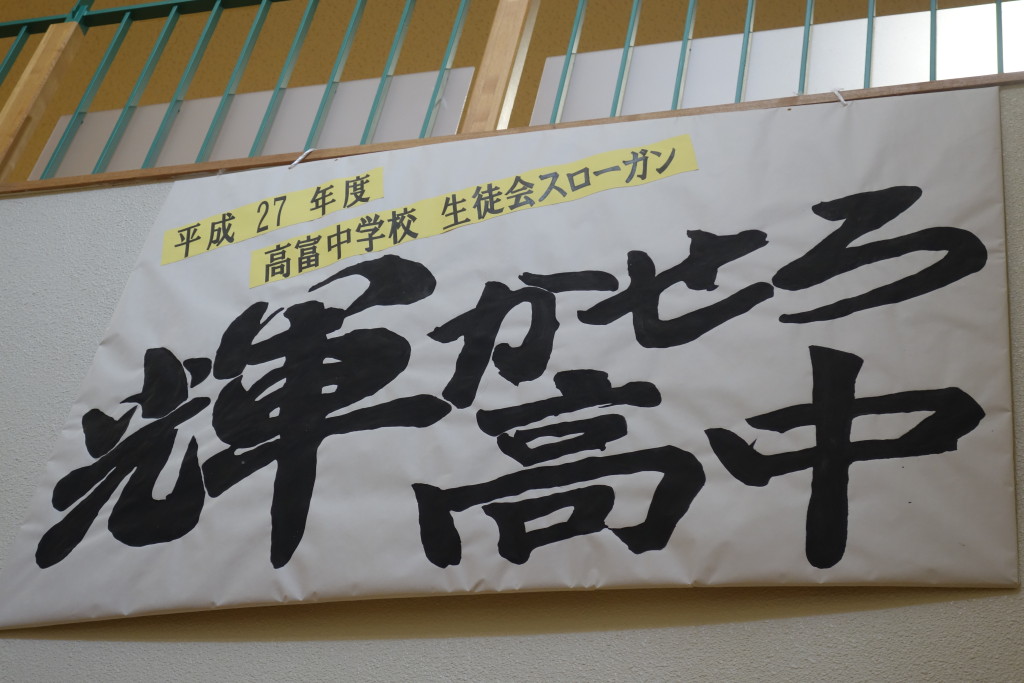 平成 27 年度
高富中学校 生徒会スローガン
輝かせろ
高中